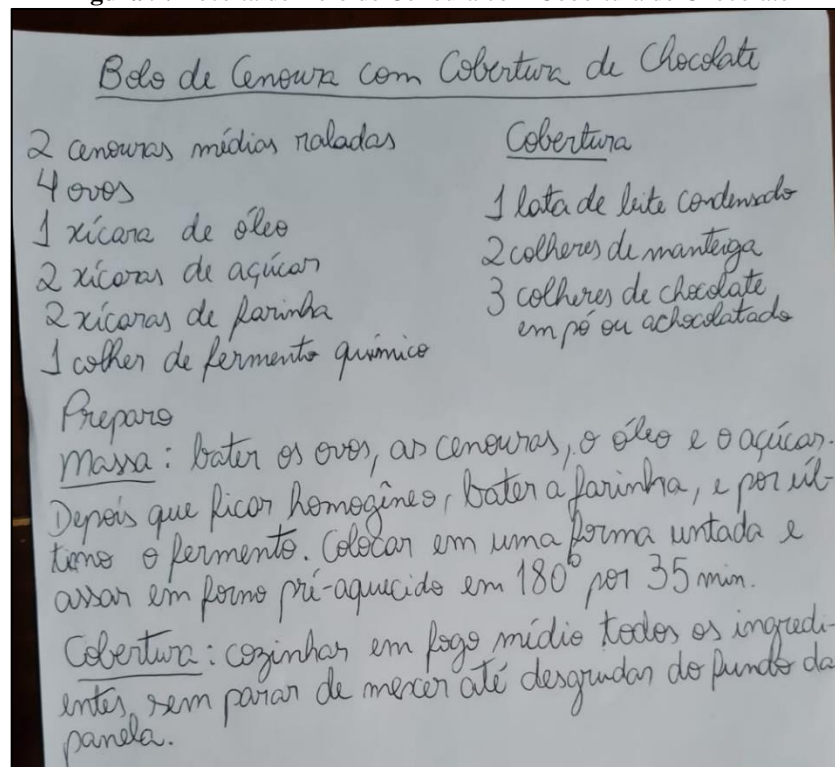 Bolo de Cenoura com Cobertura de Chocolate
2 cenouras médias raladas
4 ovos
1 xícara de óleo
2 xícaras de açúcar
2 xícaras de farinha
1 colher de fermento químico
Cobertura
1 lata de leite condensado
2 colheres de manteiga
3 colheres de chocolate
em pó ou achocolatado
Preparo
Massa: bater os ovos, as cenouras, o óleo e o açúcar.
Depois que ficar homogêneo, bater a farinha, e por úl-
timo o fermento. Colocar em uma forma untada e
assar em forno pré-aquecido em 180° por 35 min.
Cobertura: cozinhar em fogo médio todos os ingredi-
entes, sem parar de mexer até desgrudar do fundo da
panela.